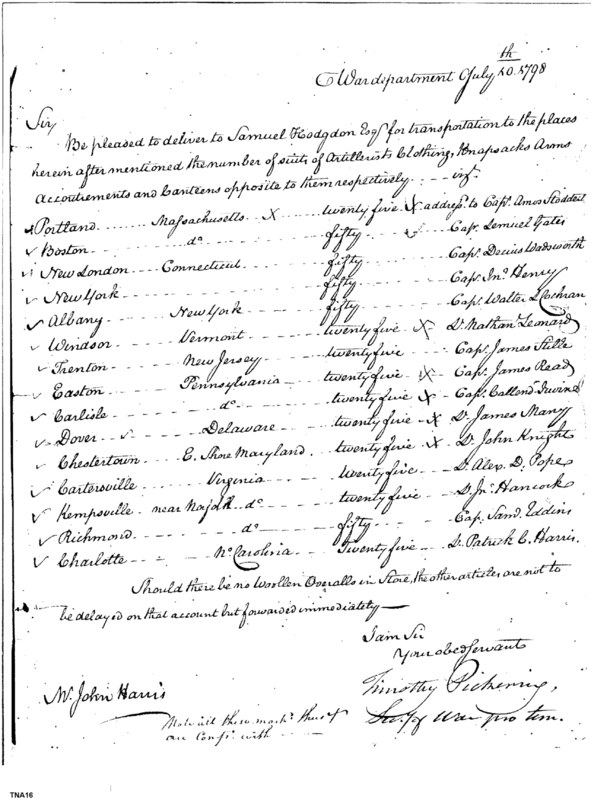 War department July 10th 1798
Sir,
Be pleased to deliver to Samuel Hodgdon Esqr. for transportation to the places
herein after mentioned the number of suits of Artillerists Clothing, Knapsacks Arms
Accoutrements and Canteens opposite to them respectively .... vizt.
Portland ..... Massachusetts X twenty five X address to Capt. Amos Stoddert
Boston do. fifty Capt. Lemuel Gates
New London Connecticut fifty Capt. Decius Wadsworth
New York fifty Capt. Jno. Henry
Albany New York fifty Capt. Walter L Cochran
Windsor Vermont twenty five X Lt. Nathan Leonard
Trenton New Jersey twenty five Capt. James Stille
Easton Pennsylvania twenty five X Capt. James Read
Carlisle do. twenty five X Capt. Callendr. Irvine
Dover Delaware twenty five X Lt. James Many
Chestertown E. Shore Maryland twenty five X Lt. John Knight
Cartersville Virginia twenty five Lt. Alex. D. Pope
Kempsville near Norfolk do. twenty five Lt. Jno. Hancock
Richmond do. fifty Cap. Saml. Eddins
Charlotte No. Carolina Twenty five Lt. Patrick C. Harris.
Should there be no Woollen Overalls in Store, the other articles are not to
be delayed on that account but forwarded immediately
I am Sir
Your obed Servant
Timothy Pickering,
Secy. of War pro tem.
Mr. John Harris
Note all those markd. thus X
are with
TNA16